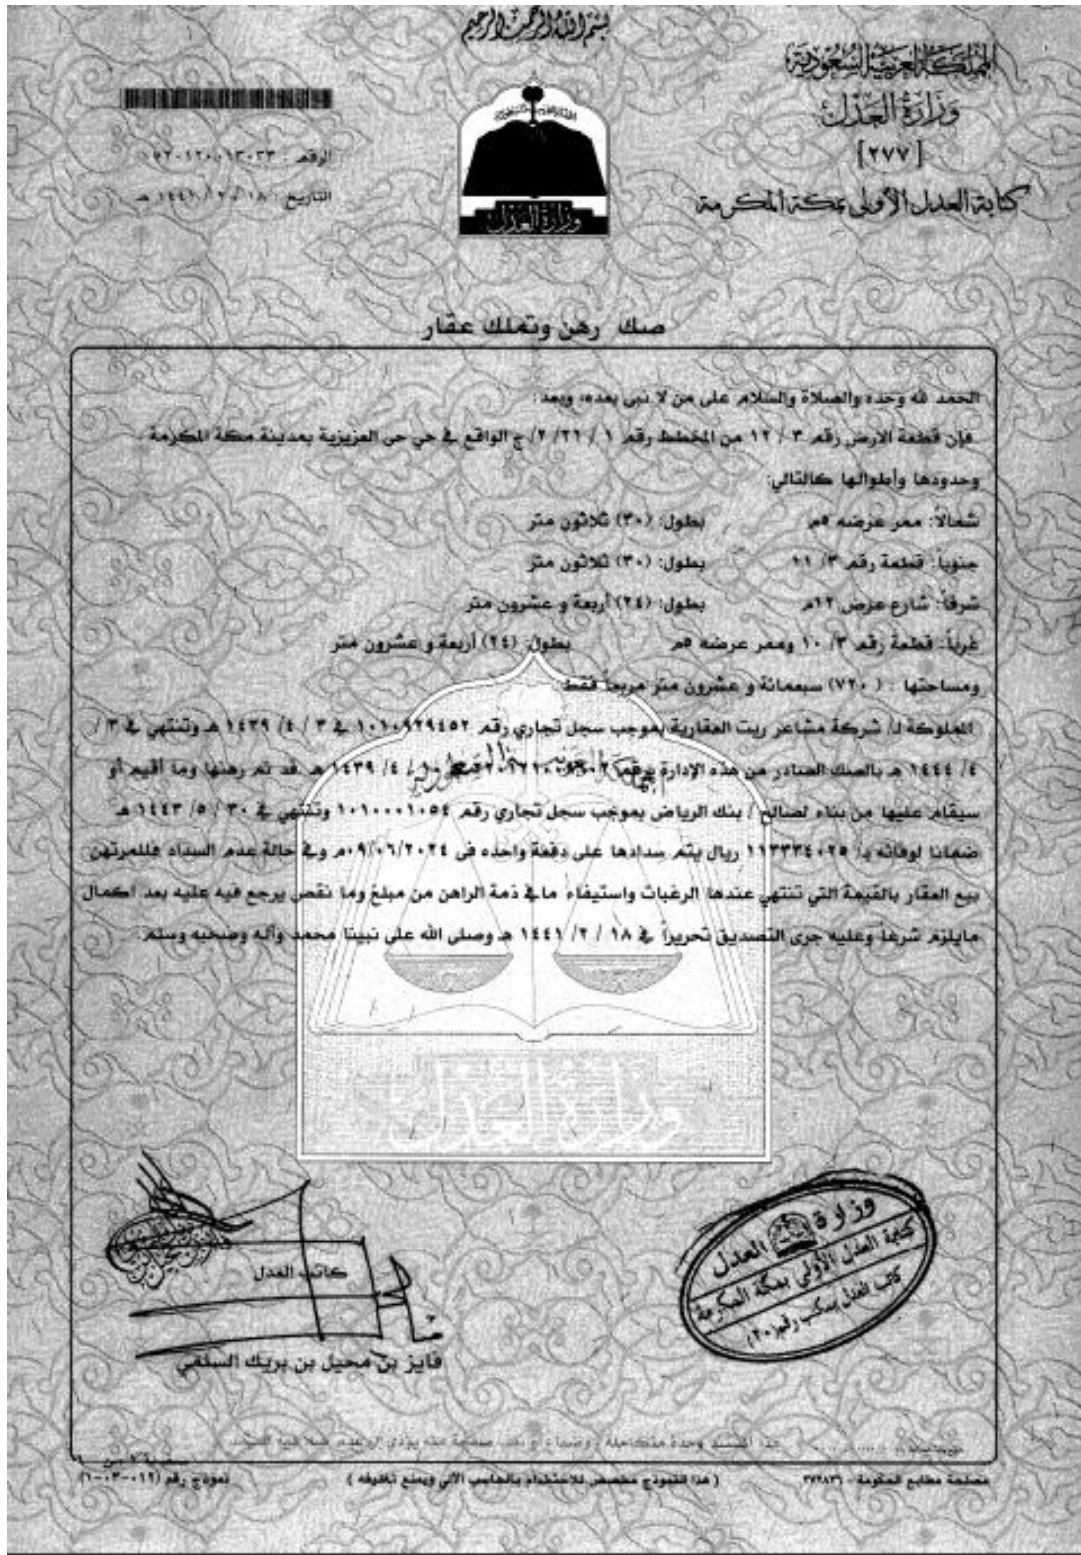 بسم الله الرحمن الرحيم
المملكة العربية السعودية
وزارة العدل
[٢٧٧]
كتابة العدل الأولى بمكة المكرمة
الرقم :
التاريخ : ١٨ / ٢ / ١٤٤١ هـ
وزارة العدل
صك رهن وتملك عقار
الحمد لله وحده والصلاة والسلام على من لا نبي بعده، وبعد:
فإن قطعة الارض رقم ٣ / ١٢ من المخطط رقم ١ / ٢١/ ٢/ ج الواقع في حي حي العزيزية بمدينة مكة المكرمة .
وحدودها وأطوالها كالتالي:
شمالاً: ممر عرضه ٥م بطول: (٣٠) ثلاثون متر
جنوباً: قطعة رقم ٣/ ١١ بطول: (٣٠) ثلاثون متر
شرقاً: شارع عرض ١٢م بطول: (٢٤) أربعة و عشرون متر
غرباً: قطعة رقم ٣/ ١٠ وممر عرضه ٥م بطول: (٢٤) أربعة و عشرون متر
ومساحتها : ( ٧٢٠) سبعمائة و عشرون متر مربعاً فقط
المملوكة لـ/ شركة مشاعر ريت العقارية بموجب سجل تجاري رقم ١٠١٠٩٢٩٤٥٢ في ٣ / ٤/ ١٤٣٩ هـ وتنتهي في ٣ /
٤/ ١٤٤٤ هـ بالصك الصادر من هذه الإدارة برقم في ١٠ / ٤/ ١٤٣٩ هـ قد تم رهنها وما أقيم أو
سيقام عليها من بناء لصالح / بنك الرياض بموجب سجل تجاري رقم ١٠١٠٠٠١٠٥٤ وتنتهي في ٣٠ / ٥/ ١٤٤٣ هـ
ضمانا لوفائه بـ/ ١١٣٣٣٤٠٢٥ ريال يتم سدادها على دفعة واحده فى ٠٩/٠٦/٢٠٢٤م وفي حالة عدم السداد فللمرتهن
بيع العقار بالقيمة التي تنتهي عندها الرغبات واستيفاء مافي ذمة الراهن من مبلغ وما نقص يرجع فيه عليه بعد اكمال
مايلزم شرعاً وعليه جرى التصديق تحريراً في ١٨ / ٢/ ١٤٤١ هـ وصلى الله على نبينا محمد وآله وصحبه وسلم.
وزارة العدل
وزارة العدل
كتابة العدل الأولى بمكة المكرمة
كاتب العدل بمكتب رقم (٢٠)
كاتب العدل
فايز بن محيل بن بريك السلمي
هذا المستند وحدة متكاملة ، وضياع أو تلف صفحة منه يؤدي إلى عدم صلاحية المستند
مصلحة مطابع الحكومة - ٣٧٢٨٣٦
( هذا النموذج مخصص للاستخدام بالحاسب الآلي ويمنع تغليفه )
نموذج رقم (١٢-٠٣-٠١)